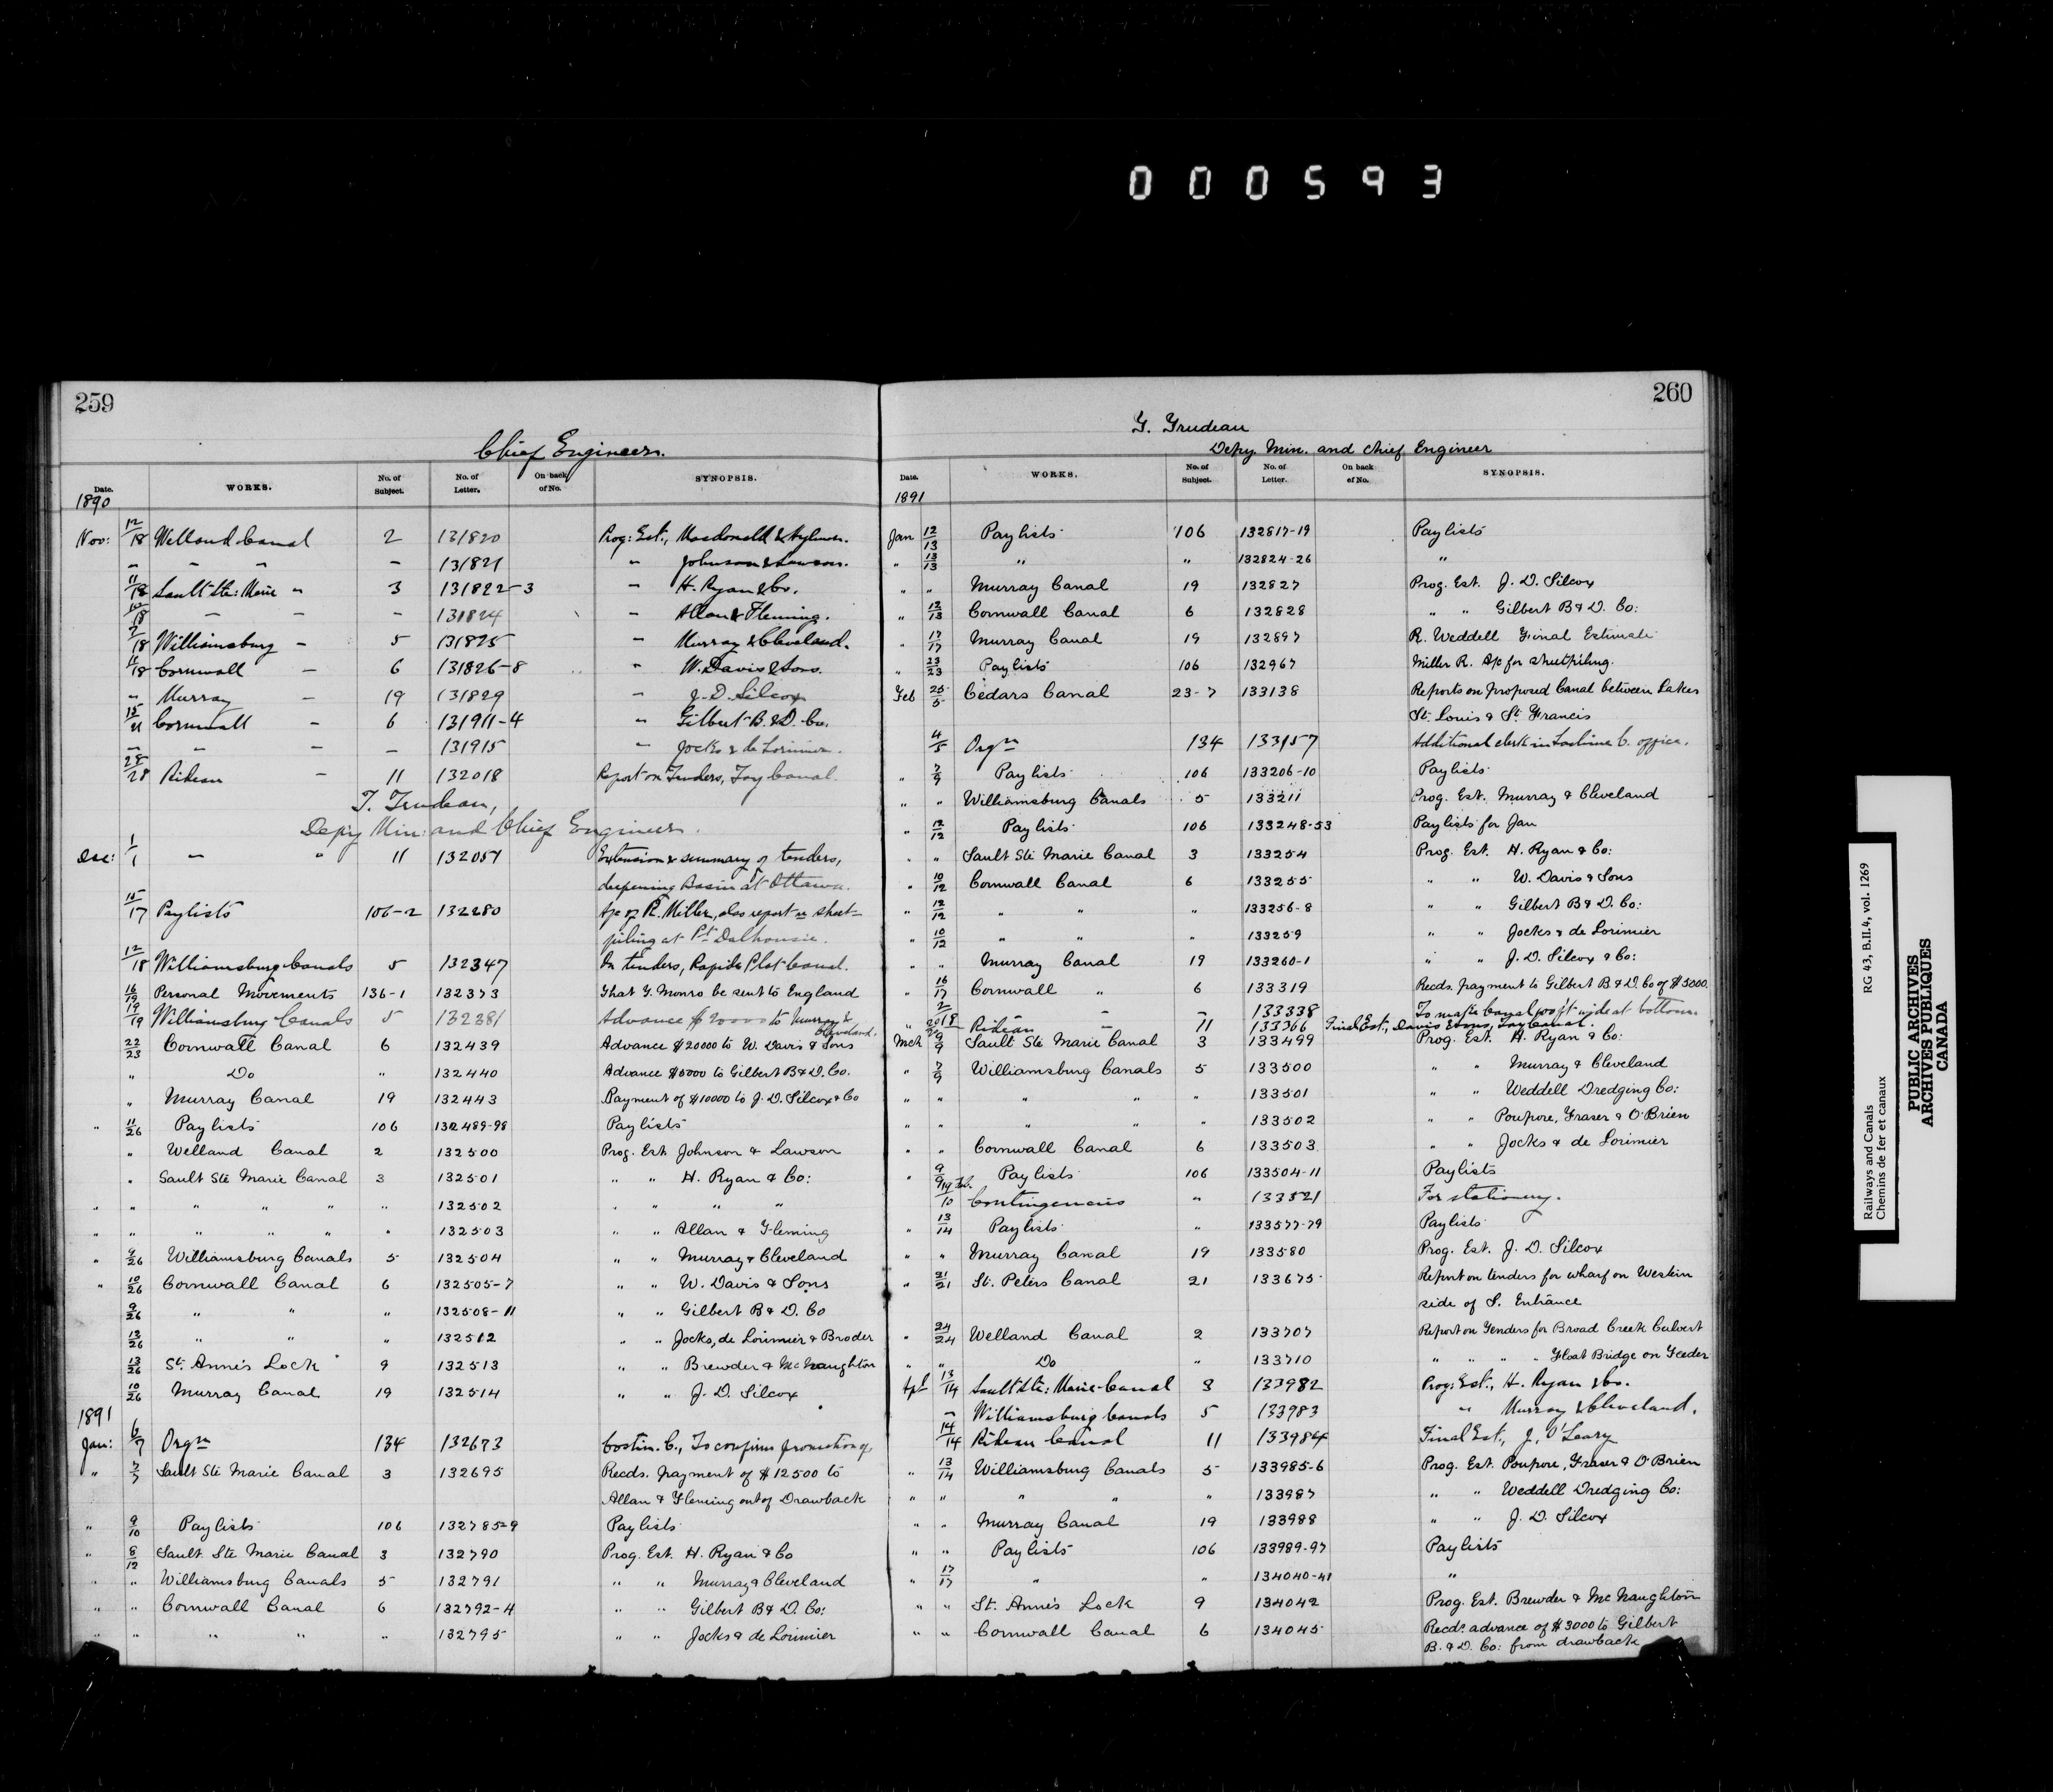 000593
259
Chief Engineer.
Date. WORKS. No. of Subject. No. of Letter. On back of No. SYNOPSIS.
1890
Nov: 12/18 Welland Canal 2 131820 Prog: Est., Macdonald & Aylmer.
" " " " 131821 " Johnson & Lawson.
11/18 Sault Ste: Marie " 3 131822-3 " H. Ryan & Co.
10/18 " " " 131824 " Allan & Fleming.
7/18 Williamsburg " 5 131825 " Murray & Cleveland.
11/18 Cornwall " 6 131826-8 " W. Davis & Sons.
" Murray " 19 131829 " J. D. Silcox
15/21 Cornwall " 6 131911-4 " Gilbert B. & D. Co.
" " " " 131915 " Jocks & de Lorimier.
28/28 Rideau " 11 132018 Report on Tenders, Tay Canal.
T. Trudeau,
Depy Min: and Chief Engineer.
Dec: 1/1 " " 11 132051 Extension & summary of tenders,
deepening Basin at Ottawa.
15/17 Paylists 106-2 132280 Ap of R. Miller, also report re sheet-
piling at Pt Dalhousie.
12/18 Williamsburg Canals 5 132347 On tenders, Rapide Plat Canal.
16/19 Personal Movements 136-1 132373 That T. Monro be sent to England
19/19 Williamsburg Canals 5 132381 Advance $20000 to Murray &
Cleveland.
22/23 Cornwall Canal 6 132439 Advance $20000 to W. Davis & Sons
" Do " 132440 Advance $5000 to Gilbert B & D. Co.
" Murray Canal 19 132443 Payment of $10000 to J. D. Silcox & Co
" 11/26 Paylists 106 132489-98 Paylists
" Welland Canal 2 132500 Prog. Est. Johnson & Lawson
" Sault Ste Marie Canal 3 132501 " " H. Ryan & Co:
" " " " " " 132502 " " " "
" " " " " " 132503 " " Allan & Fleming
" 9/26 Williamsburg Canals 5 132504 " " Murray & Cleveland
" 10/26 Cornwall Canal 6 132505-7 " " W. Davis & Sons
9/26 " " " 132508-11 " " Gilbert B & D. Co
13/26 " " " 132512 " " Jocks, de Lorimier & Broder
13/26 St. Anne's Lock 9 132513 " " Brewder & McNaughton
10/26 Murray Canal 19 132514 " " J. D. Silcox
1891
Jan: 6/7 Orgn 134 132673 Costin. C., To confirm promotion of,
" 7/7 Sault Ste Marie Canal 3 132695 Recds. payment of $12500 to
Allan & Fleming out of Drawback
" 9/10 Paylists 106 132785-9 Paylists
" 8/12 Sault Ste Marie Canal 3 132790 Prog. Est. H. Ryan & Co
" " Williamsburg Canals 5 132791 " " Murray & Cleveland
" " Cornwall Canal 6 132792-4 " " Gilbert B & D. Co:
" " " " " 132795 " " Jocks & de Lorimier
260
T. Trudeau
Depy. Min. and Chief Engineer
Date. WORKS. No. of Subject. No. of Letter. On back of No. SYNOPSIS.
1891
Jan 12/13 Paylists 106 132817-19 Paylists
" 13/13 " " 132824-26 "
" " Murray Canal 19 132827 Prog. Est. J. D. Silcox
" 12/13 Cornwall Canal 6 132828 " " Gilbert B & D. Co:
" 17/17 Murray Canal 19 132897 R. Weddell Final Estimate
" 23/23 Paylists 106 132967 Miller R. Ap for sheetpiling.
Feb 25/5 Cedars Canal 23-7 133138 Reports on proposed Canal between Lakes
St. Louis & St. Francis
4/5 Orgn 134 133157 Additional clerk in Lachine C. office.
" 7/9 Paylists 106 133206-10 Paylists
" " Williamsburg Canals 5 133211 Prog. Est. Murray & Cleveland
" 12/12 Paylists 106 133248-53 Paylists for Jan
" " Sault Ste Marie Canal 3 133254 Prog. Est. H. Ryan & Co:
" 10/12 Cornwall Canal 6 133255 " " W. Davis & Sons
" 12/12 " " " 133256-8 " " Gilbert B & D. Co:
" 10/12 " " " 133259 " " Jocks & de Lorimier
" " Murray Canal 19 133260-1 " " J. D. Silcox & Co:
" 16/17 Cornwall " 6 133319 Recds. payment to Gilbert B. & D. Co of $5000.
2/18 " " 133338 To make Canal 100 ft wide at bottom.
" Rideau " 11 133366 Final Est., Davis & Sons, Tay Canal.
Mch 9/9 Sault Ste Marie Canal 3 133499 Prog. Est. H. Ryan & Co:
" 7/9 Williamsburg Canals 5 133500 " " Murray & Cleveland
" " " " " 133501 " " Weddell Dredging Co:
" " " " " 133502 " " Poupore, Fraser & O'Brien
" " Cornwall Canal 6 133503 " " Jocks & de Lorimier
" 9/9 Paylists 106 133504-11 Paylists
19 Feb./10 Contingencies " 133521 For stationery.
" 13/14 Paylists " 133577-79 Paylists
" " Murray Canal 19 133580 Prog. Est. J. D. Silcox
" 21/21 St. Peters Canal 21 133675 Report on tenders for wharf on Western
side of S. Entrance
" 24/24 Welland Canal 2 133707 Report on Tenders for Broad Creek Culvert
" " Do " 133710 " " " " Float Bridge on Feeder
Apl 13/14 Sault Ste: Marie Canal 3 133982 Prog: Est., H. Ryan & Co.
" Williamsburg Canals 5 133983 " Murray & Cleveland.
14/14 Rideau Canal 11 133984 Final Est., J. O'Leary
" 13/14 Williamsburg Canals 5 133985-6 Prog. Est. Poupore, Fraser & O'Brien
" " " " " 133987 " " Weddell Dredging Co:
" " Murray Canal 19 133988 " " J. D. Silcox
" " Paylists 106 133989-97 Paylists
" 17/17 " " 134040-41 "
" " St. Anne's Lock 9 134042 Prog. Est. Brewder & McNaughton
" " Cornwall Canal 6 134045 Recds. advance of $3000 to Gilbert
B. & D. Co: from drawback
Railways and Canals RG 43, B.II.4, vol. 1269
Chemins de fer et canaux
PUBLIC ARCHIVES
ARCHIVES PUBLIQUES
CANADA